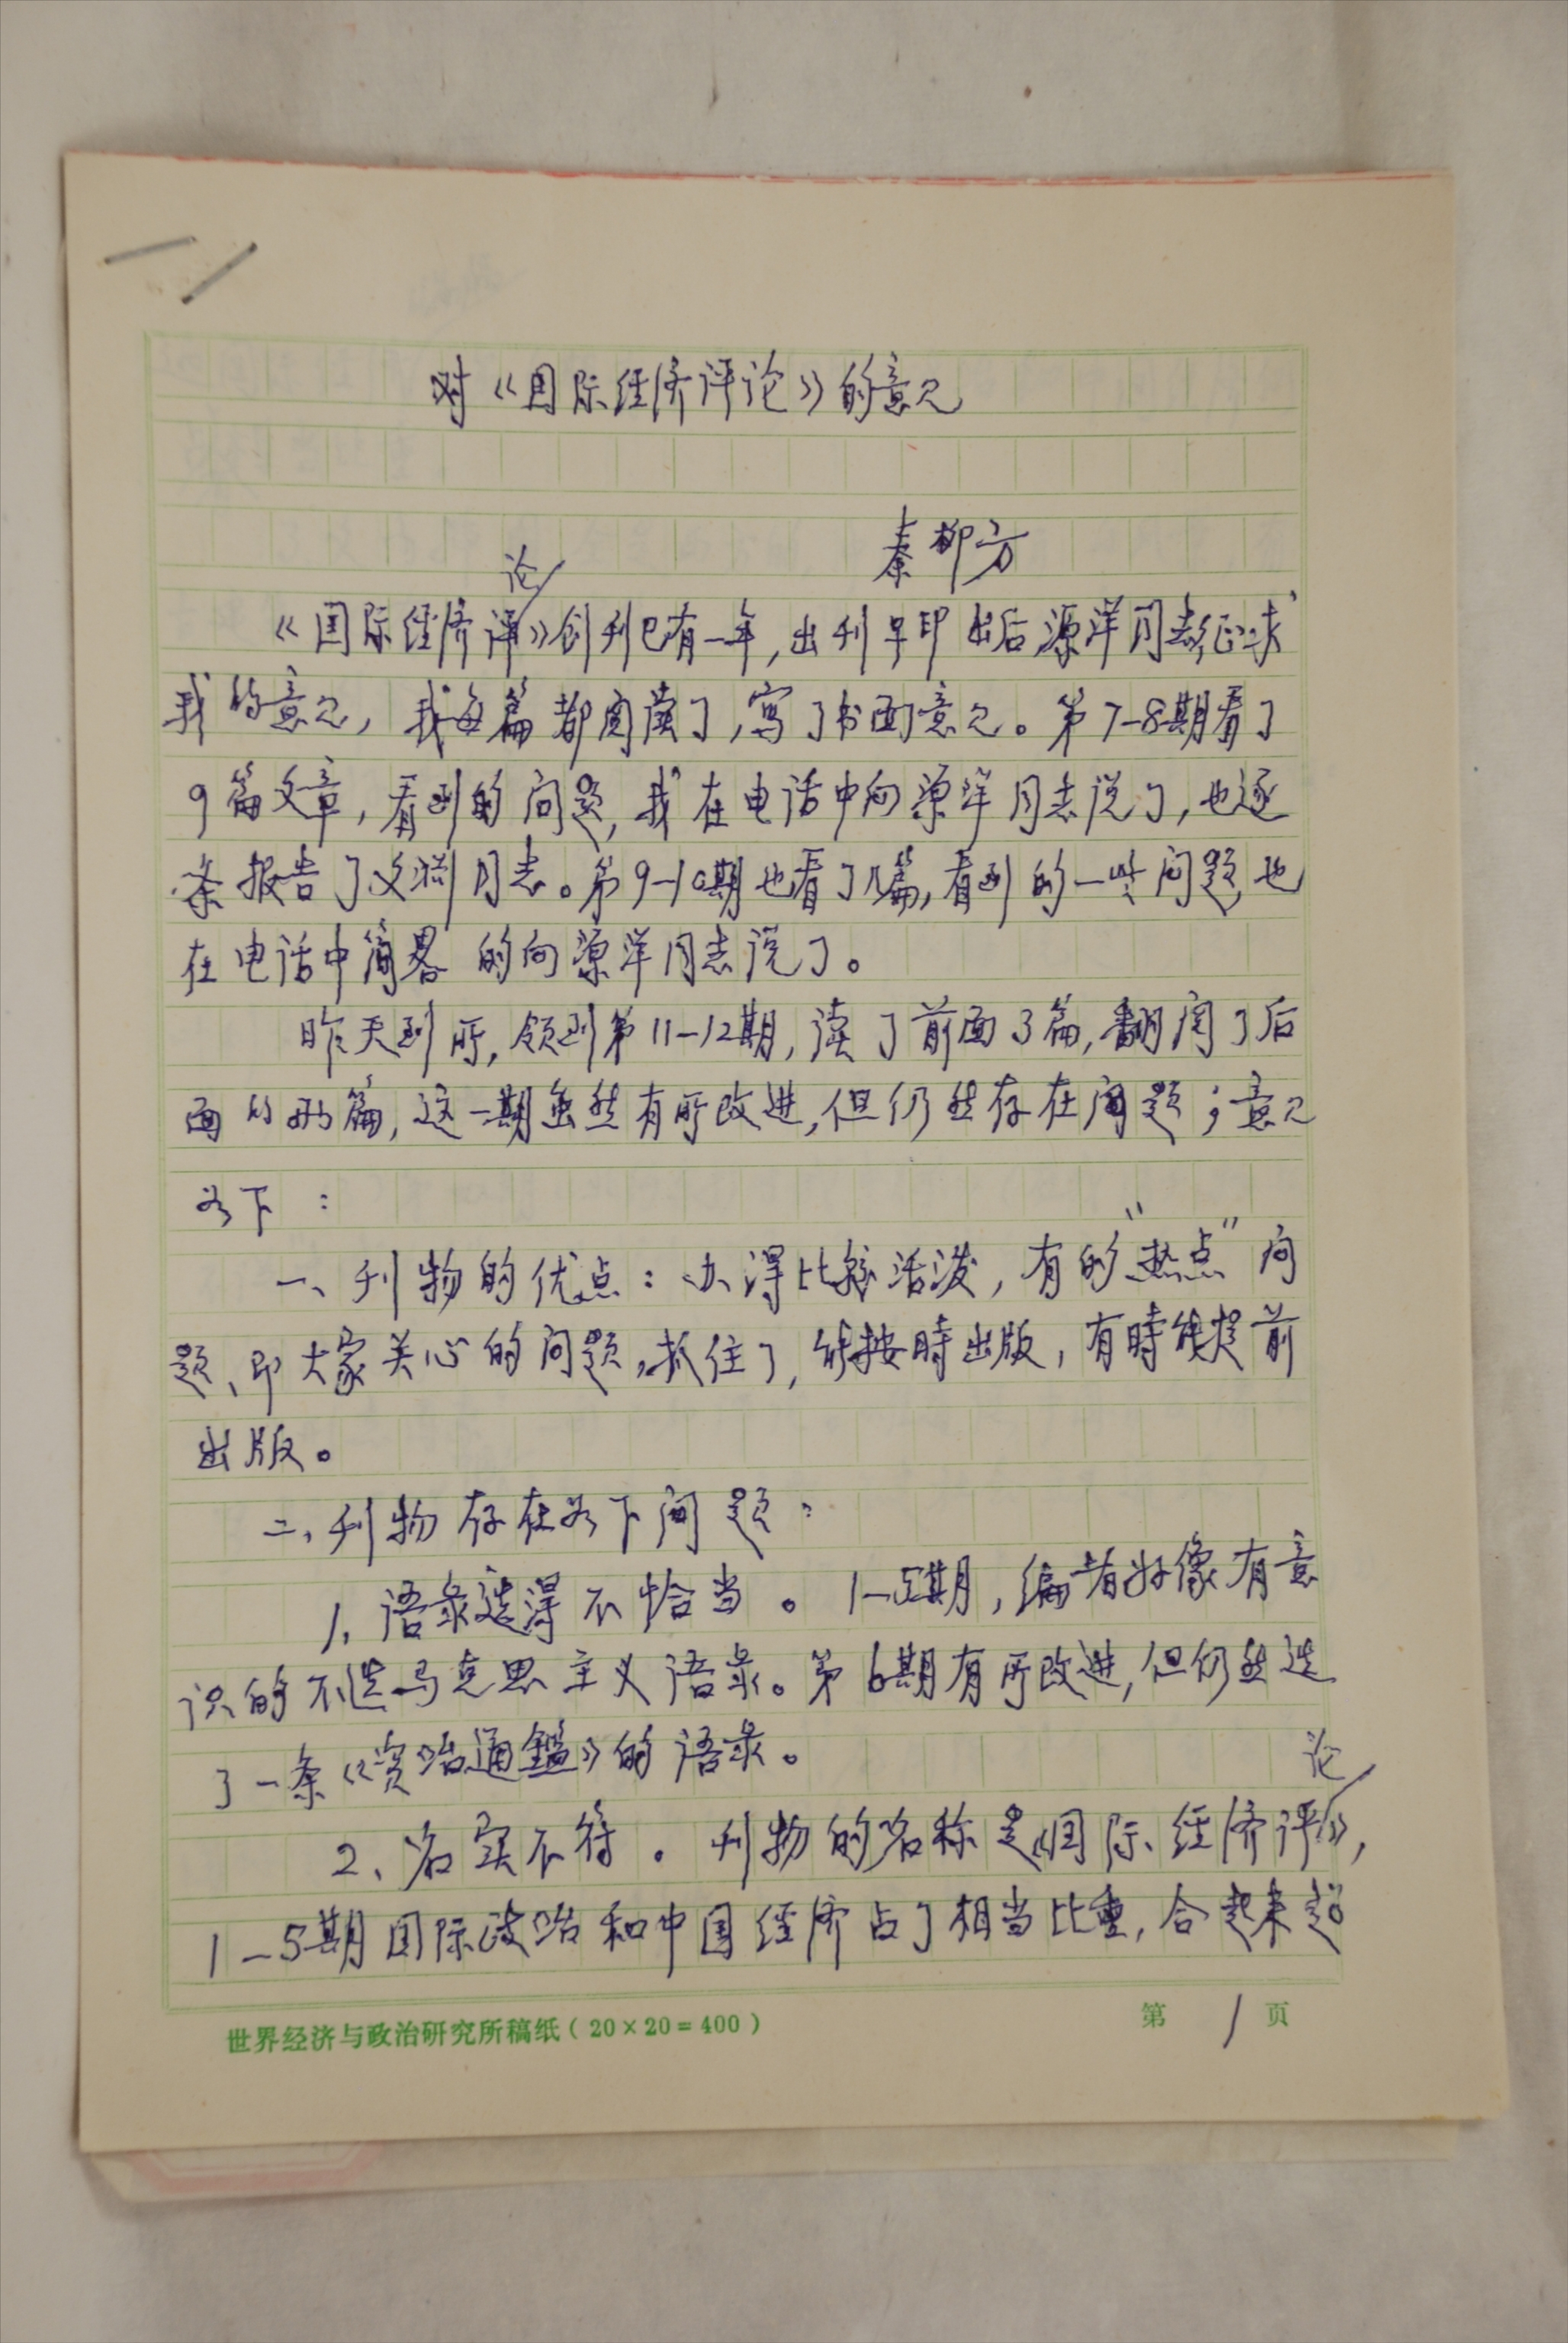 对《国际经济评论》的意见
秦柳方
《国际经济评论》创刊已有一年,出刊早印出后源洋同志征求
我的意见,我每篇都阅读了,写了书面意见。第7-8期看了
9篇文章,看到的问题,我在电话中向源洋同志说了,也逐
条报告了文渊同志。第9-10期也看了几篇,看到的一些问题,也
在电话中简略的向源洋同志说了。
昨天到所,领到第11-12期,读了前面3篇,翻阅了后
面的两篇,这一期虽然有所改进,但仍然存在问题;意见
如下:
一、刊物的优点:办得比较活泼,有的“热点”问
题、即大家关心的问题,抓住了,能按時出版,有時能提前
出版。
二、刊物存在如下问题:
1、语录选得不恰当。1-5期,编者好像有意
识的不选马克思主义语录。第6期有所改进,但仍然选
了一条《资治通鑑》的语录。
2、名实不符。刊物的名称是《国际经济评论》,
1-5期国际政治和中国经济占了相当比重,合起来超
世界经济与政治研究所稿纸(20×20=400)
第1页